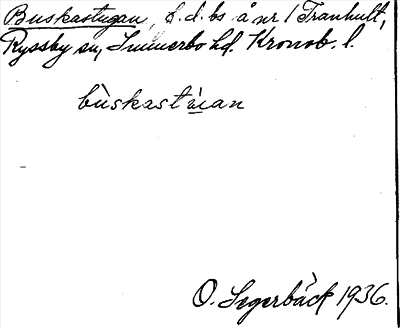 Buskastugan, f.d. bs å nr 1 Tranhult,
Ryssby sn, Sunnerbo hd. Kronob. l.
bùskastúan
O. Segerbäck 1936.